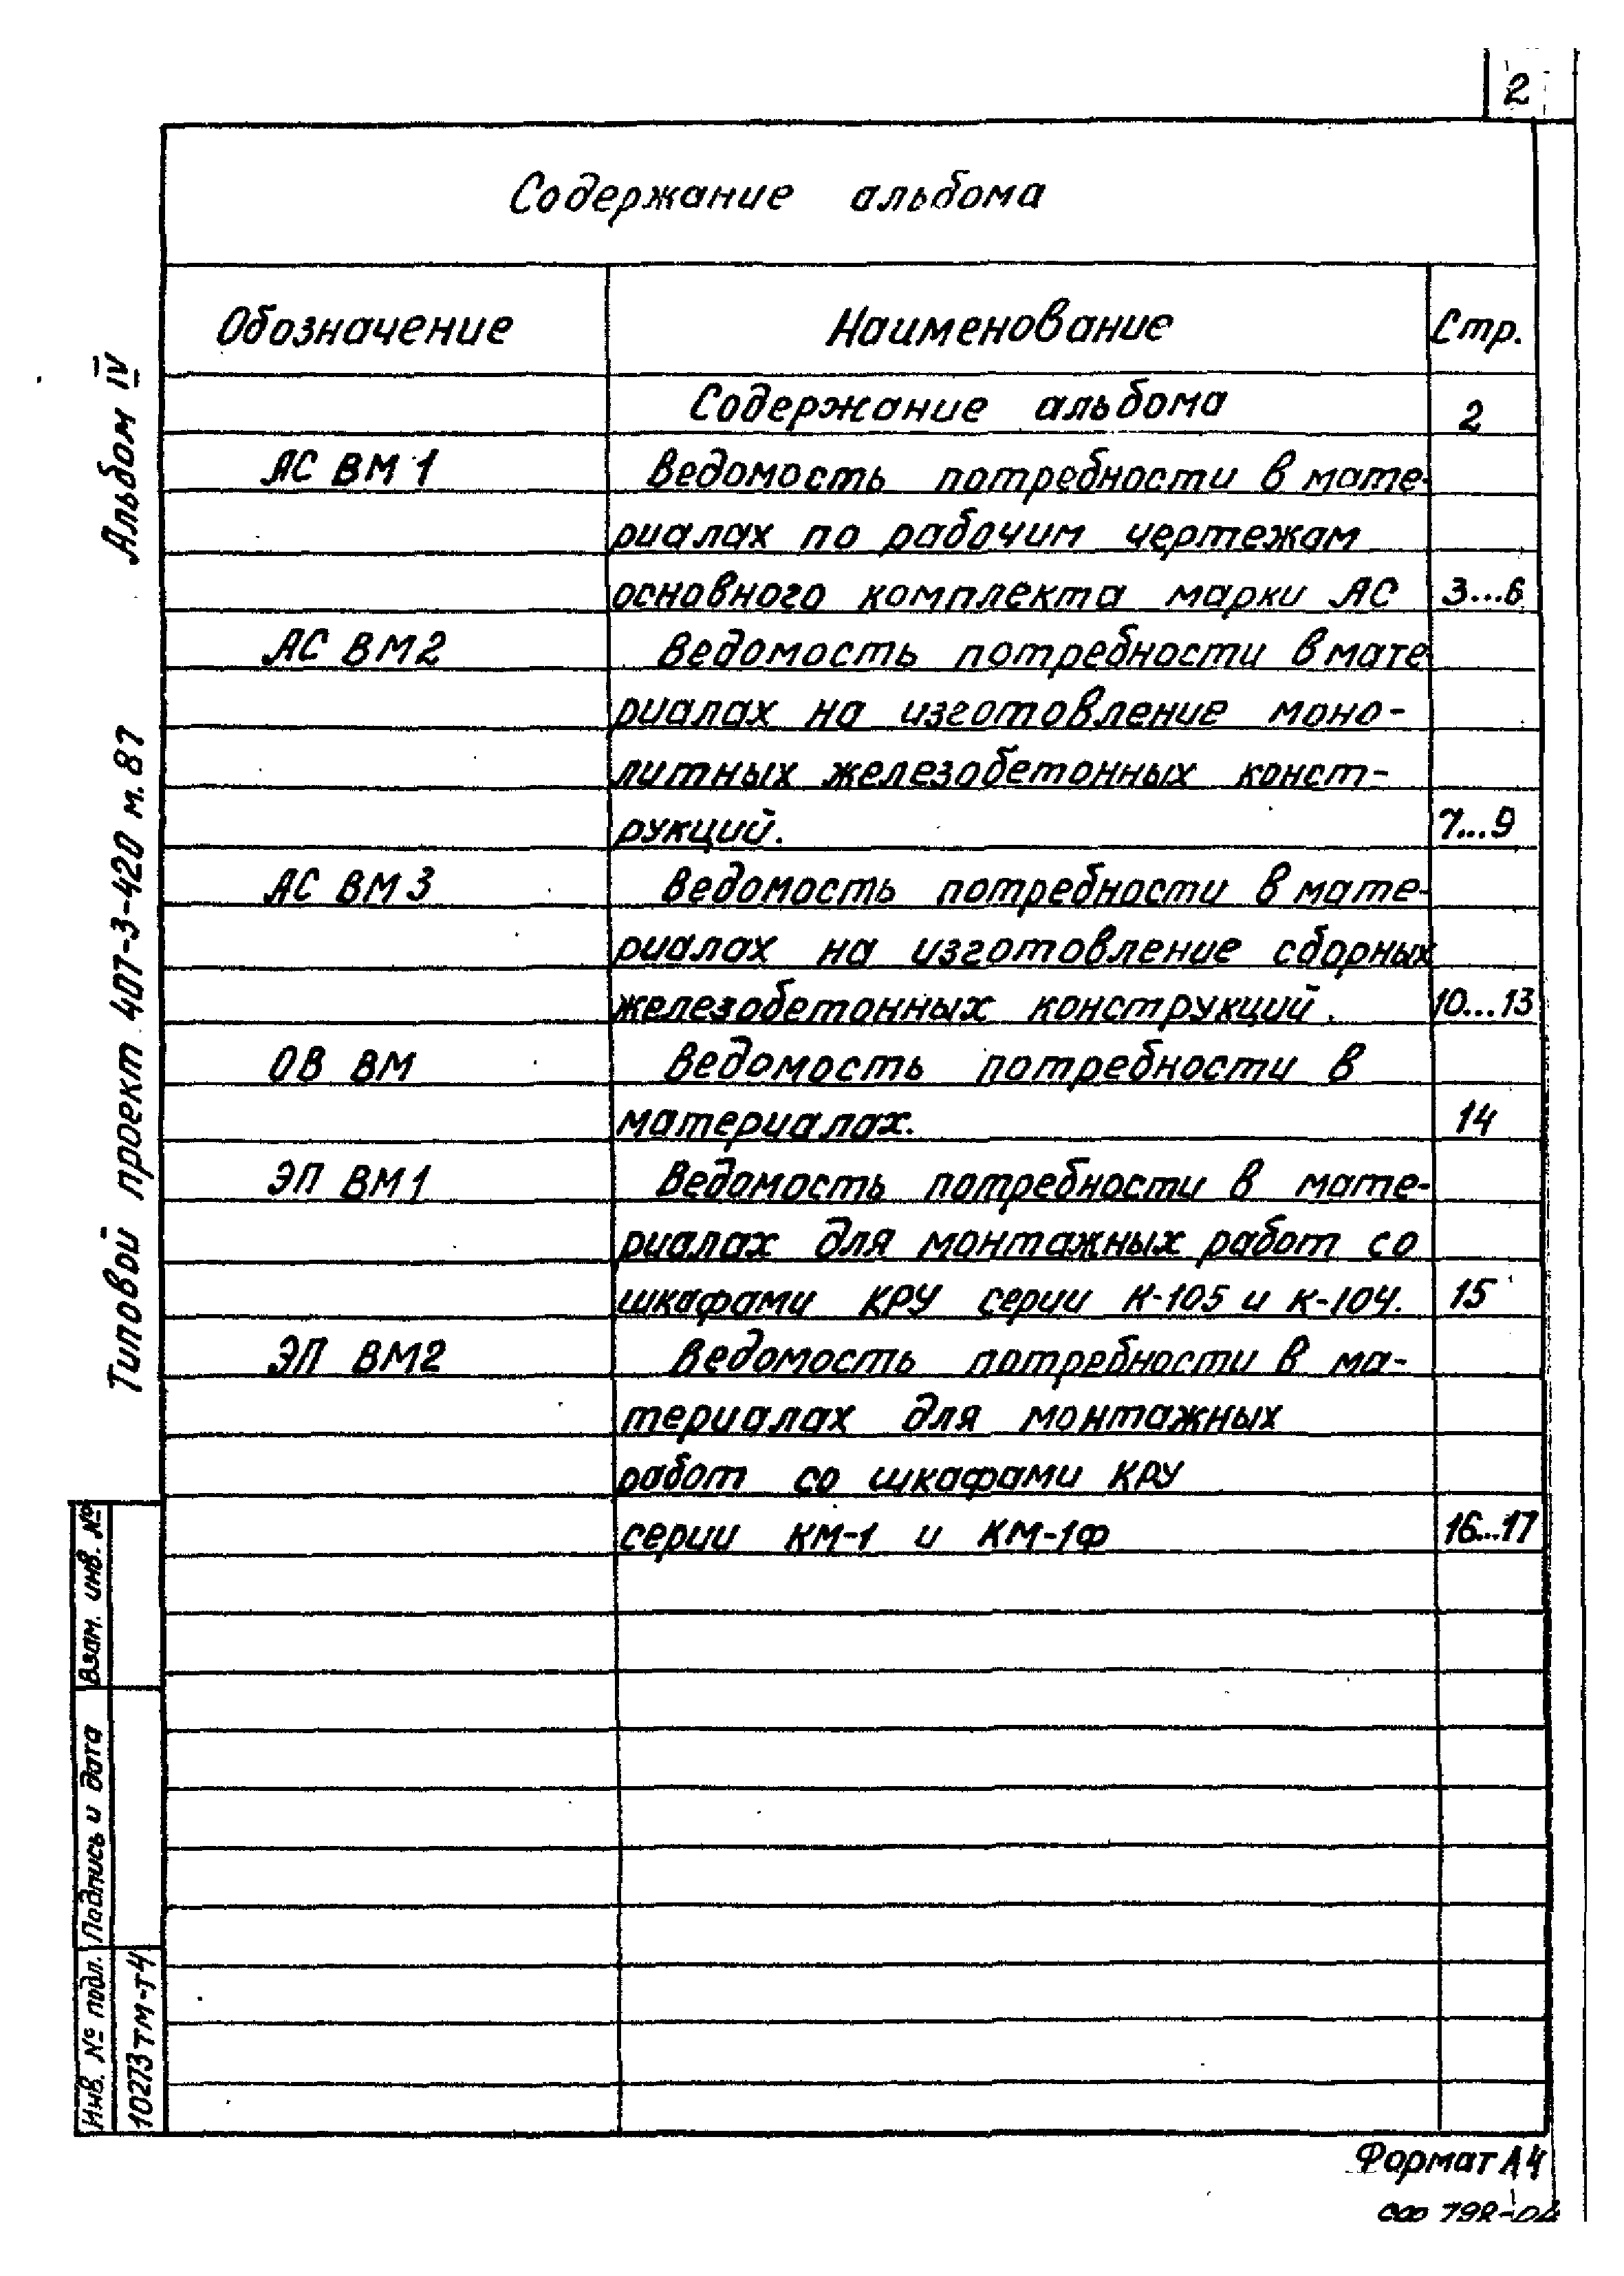 2
Содержание альбома
Обозначение Наименование Стр.
Содержание альбома 2
АС ВМ 1 Ведомость потребности в мате-
риалах по рабочим чертежам
основного комплекта марки АС 3...6
АС ВМ2 Ведомость потребности в мате
риалах на изготовление моно-
литных железобетонных конст-
рукций. 7...9
АС ВМ 3 Ведомость потребности в мате-
риалах на изготовление сборных
железобетонных конструкций. 10...13
ОВ ВМ Ведомость потребности в
материалах. 14
ЭП ВМ1 Ведомость потребности в мате-
риалах для монтажных работ со
шкафами КРУ серии К-105 и К-104. 15
ЭП ВМ2 Ведомость потребности в ма-
териалах для монтажных
работ со шкафами КРУ
серии КМ-1 и КМ-1Ф 16...17
Типовой проект 407-3-420 м. 87 Альбом IV
Взам. инв. №
Подпись и дата
Инв. № подл.
10273тм-т4
Формат А4
798-04